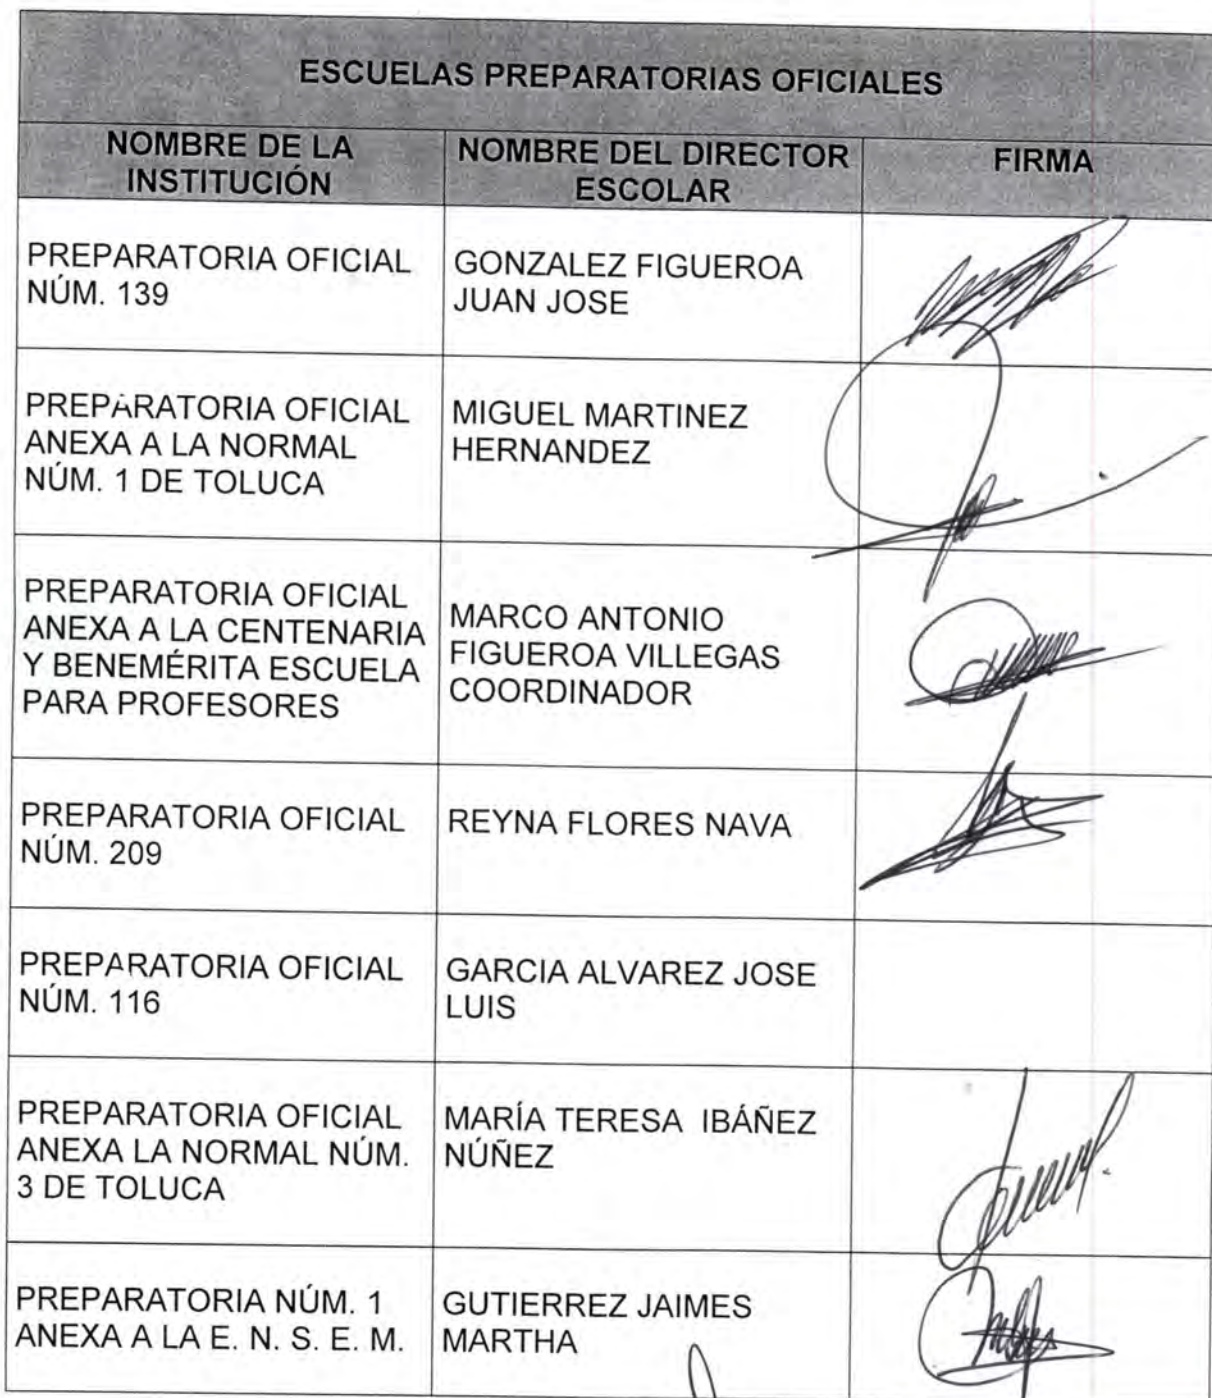 ESCUELAS PREPARATORIAS OFICIALES
NOMBRE DE LA
INSTITUCIÓN
NOMBRE DEL DIRECTOR
ESCOLAR
FIRMA
PREPARATORIA OFICIAL
NÚM. 139
GONZALEZ FIGUEROA
JUAN JOSE
PREPARATORIA OFICIAL
ANEXA A LA NORMAL
NÚM. 1 DE TOLUCA
MIGUEL MARTINEZ
HERNANDEZ
PREPARATORIA OFICIAL
ANEXA A LA CENTENARIA
Y BENEMÉRITA ESCUELA
PARA PROFESORES
MARCO ANTONIO
FIGUEROA VILLEGAS
COORDINADOR
PREPARATORIA OFICIAL
NÚM. 209
REYNA FLORES NAVA
PREPARATORIA OFICIAL
NÚM. 116
GARCIA ALVAREZ JOSE
LUIS
PREPARATORIA OFICIAL
ANEXA LA NORMAL NÚM.
3 DE TOLUCA
MARÍA TERESA IBÁÑEZ
NÚÑEZ
PREPARATORIA NÚM. 1
ANEXA A LA E. N. S. E. M.
GUTIERREZ JAIMES
MARTHA